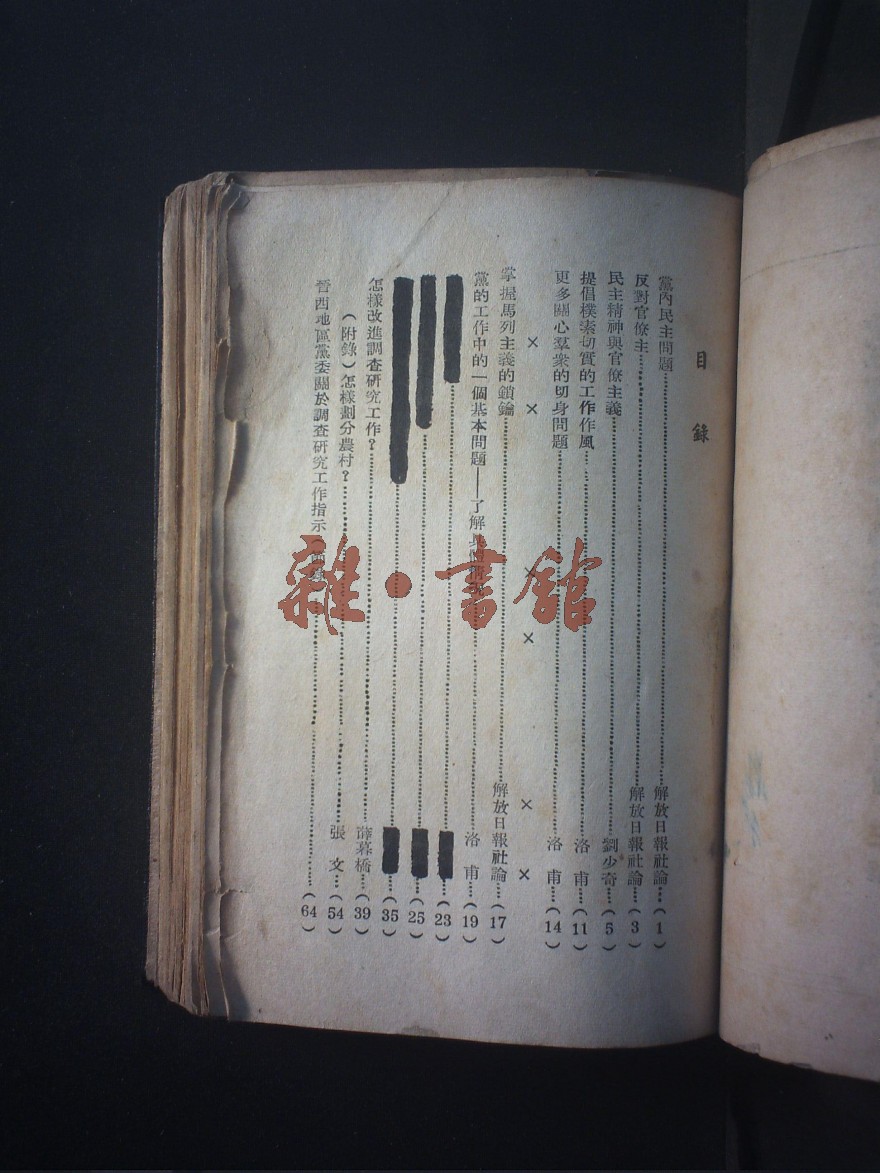 目錄
黨內民主問題……解放日報社論…(1)
反對官僚主……解放日報社論…(3)
民主精神與官僚主義……劉少奇…(5)
提倡樸素切實的工作作風……洛甫…(11)
更多關心羣衆的切身問題……洛甫…(14)
× × × × × ×
掌握馬列主義的鎖鑰……解放日報社論…(17)
黨的工作中的一個基本問題——了解……洛甫…(19)
……(23)
……(25)
……(35)
怎樣改進調查研究工作?……薛暮橋…(39)
(附錄)怎樣劃分農村?……張文…(54)
晉西地區黨委關於調查研究工作指示……(64)
雜·書館